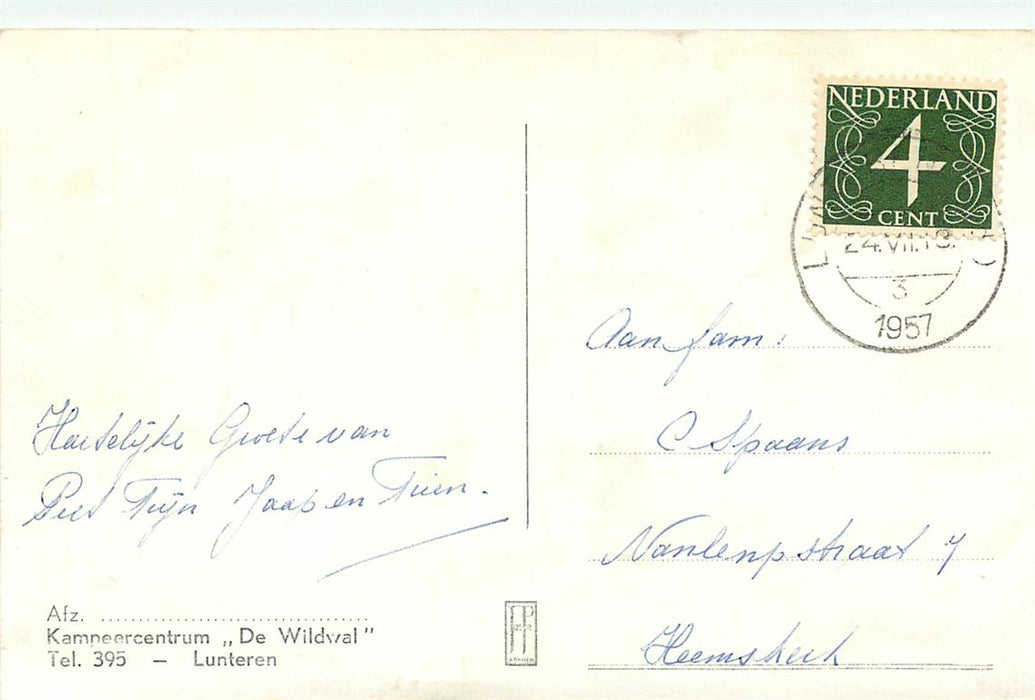 NEDERLAND
4
CENT
24.VII.
3
1957
Aan fam:
C Spaans
straat 7
Heemskerk
Hartelijke Groete van
Piet Tijn Jaap en Tien.
Afz. ..............................
Kampeercentrum „De Wildwal"
Tel. 395 — Lunteren